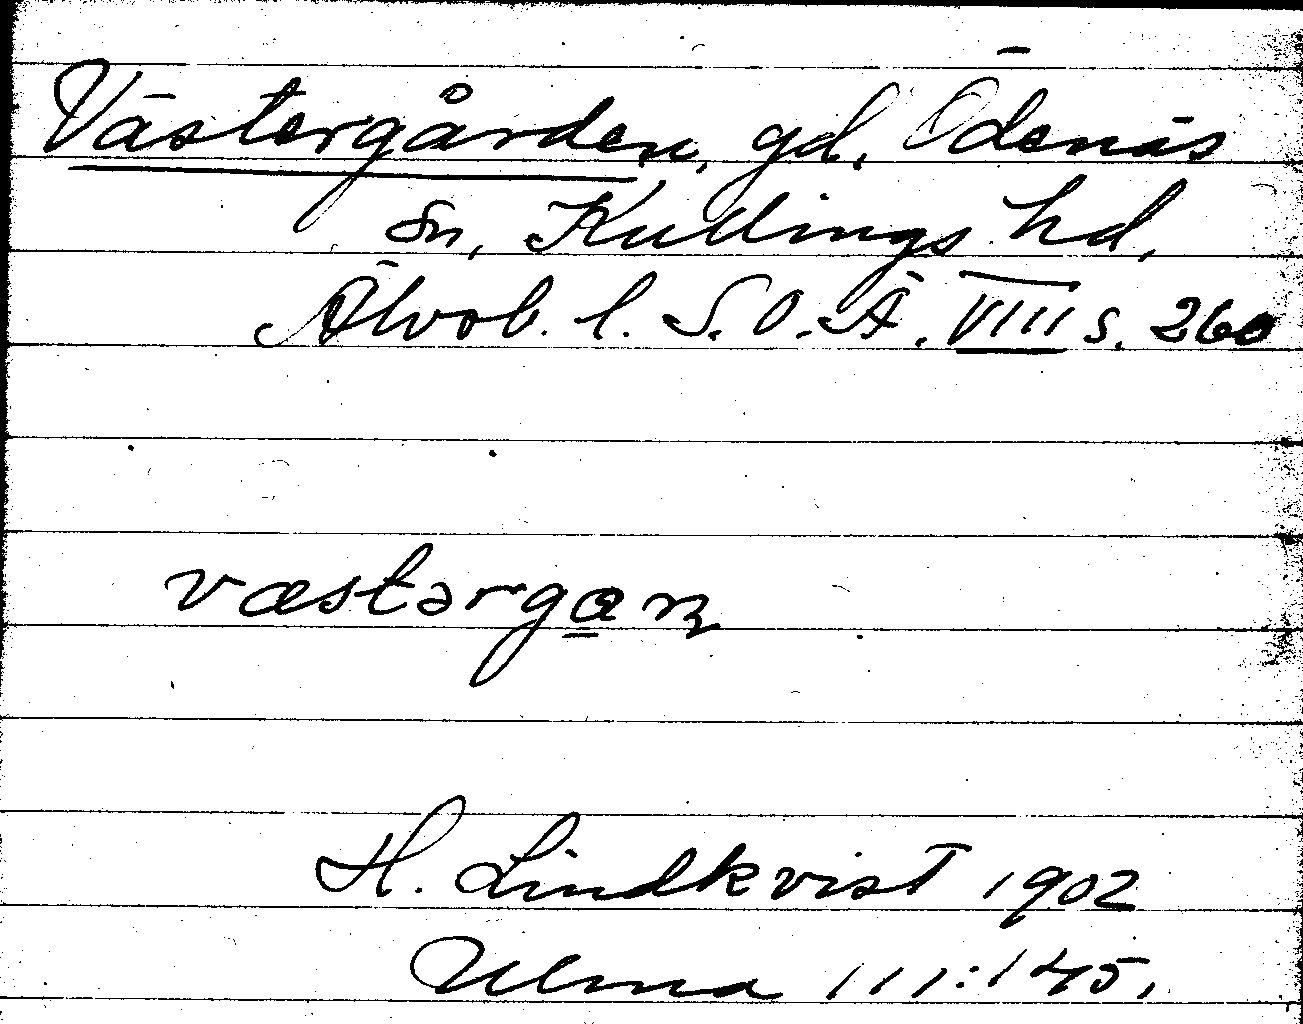 Västergården, gd, Ödenäs
sn, Kullings hd,
Älvsb. l. S.O.Ä. VIII s. 260
væstərgɑ̠ɳ
H. Lindkvist 1902
Ulma 111:145.